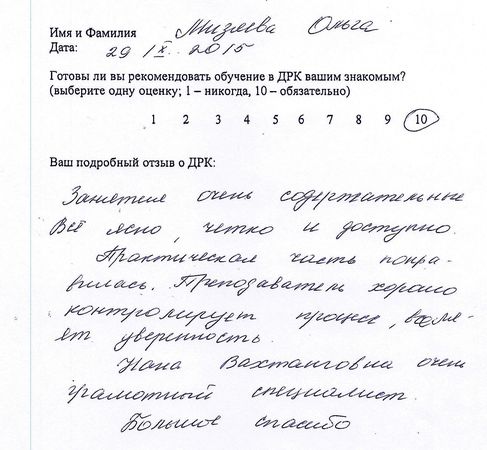 Имя и Фамилия Мизяева Ольга
Дата: 29 IX. 2015
Готовы ли вы рекомендовать обучение в ДРК вашим знакомым?
(выберите одну оценку; 1 – никогда, 10 – обязательно)
1 2 3 4 5 6 7 8 9 10
Ваш подробный отзыв о ДРК:
Занятия очень содержательные
Всё ясно, четко и доступно.
Практическая часть понра-
вилась. Преподаватель хорошо
контролирует процесс, вселя-
ет уверенность.
Нана Вахтанговна очень
грамотный специалист.
Большое спасибо